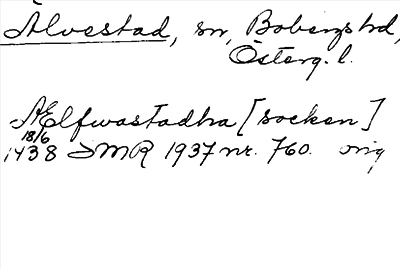 Älvestad, sn, Bobergs hd,
Österg. l.
AElfwastadha [socken]
18/6
1438 SMR 1937 nr. 760. orig